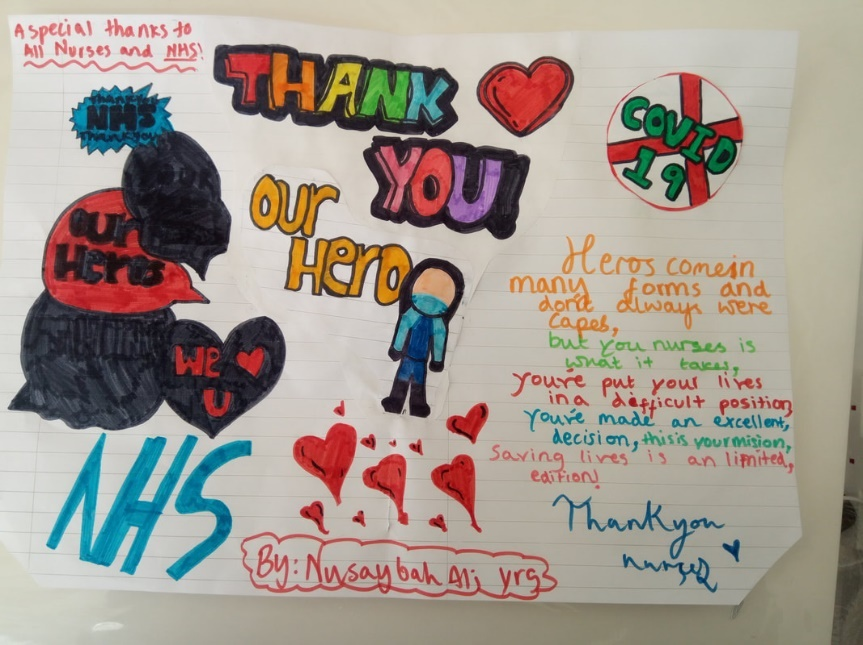 A special thanks to
All Nurses and NHS!
THANK
YOU!
Thank
NHS
Thank you
OUR
Heros
WE
U
OUR
Hero
COVID
19
Heros come in
many forms and
don't always were
capes,
but you nurses is
what it takes,
you've put your lives
in a difficult position,
you've made an excellent,
decision, this is your mision,
Saving lives is an limited,
edition!
Thankyou
nurses
NHS
By: Nusaybah Ali yr5